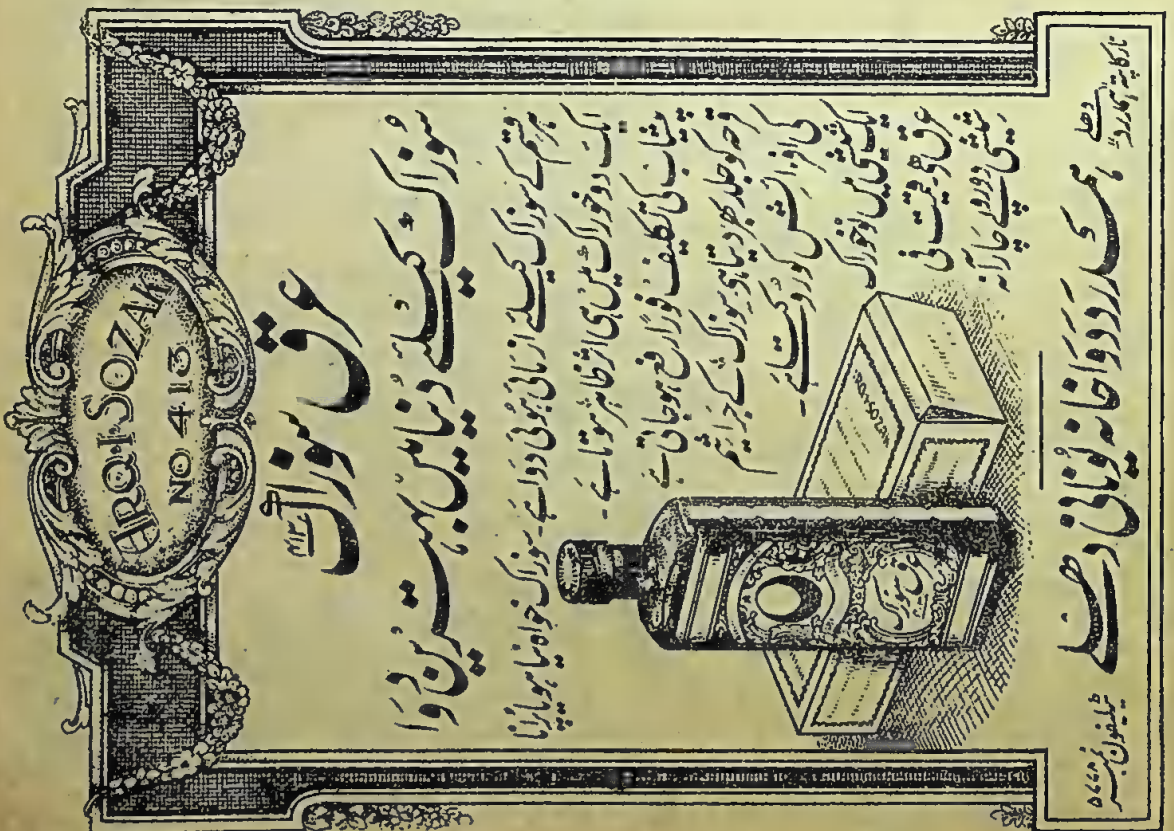 ARQ-I-SOZAK
NO 413
عرق سوزاک
سوزاک کیلئے دنیا میں بہترین دوا
ہر قسم کے سوزاک کیلئے ازمائی ہوئی دوا ہے۔ سوزاک خواہ نیا ہو یا پرانا
ایک دو خوراک میں ہی اثر ظاہر ہوتا ہے۔
پیشاب کی تکلیف فوراً رفع ہوجاتی ہے
قرحہ کو جلد بھر دیتا ہو۔ سوزاک کے جراثیم
کی افزائش کو روکتا ہے۔
ایک شیشی میں خوراک
عرق ہو قیمت فی
شیشی دوروپے چار آنہ
ARQ-I-SOZAK
عرق سوزاک
تارکا پتہ ہمدرد دہلی
ہمدرد دواخانہ یونانی دہلی
ٹیلیفون نمبر